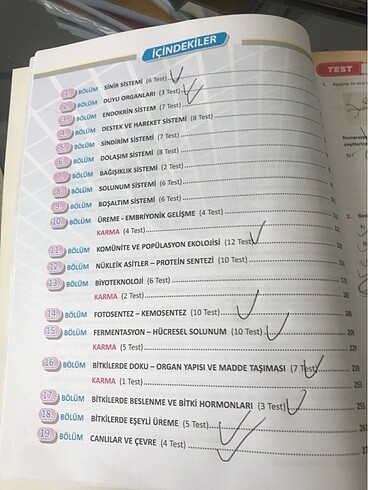 İÇİNDEKİLER
1. BÖLÜM SİNİR SİSTEMİ (6 Test)
2. BÖLÜM DUYU ORGANLARI (3 Test)
3. BÖLÜM ENDOKRİN SİSTEM (7 Test)
4. BÖLÜM DESTEK VE HAREKET SİSTEMİ (8 Test)
5. BÖLÜM SİNDİRİM SİSTEMİ (7 Test)
6. BÖLÜM DOLAŞIM SİSTEMİ (8 Test)
7. BÖLÜM BAĞIŞIKLIK SİSTEMİ (2 Test)
8. BÖLÜM SOLUNUM SİSTEMİ (6 Test)
9. BÖLÜM BOŞALTIM SİSTEMİ (6 Test)
10. BÖLÜM ÜREME - EMBRİYONİK GELİŞME (4 Test)
KARMA (4 Test)
11. BÖLÜM KOMÜNİTE VE POPÜLASYON EKOLOJİSİ (12 Test)
12. BÖLÜM NÜKLEİK ASİTLER – PROTEİN SENTEZİ (10 Test)
13. BÖLÜM BİYOTEKNOLOJİ (6 Test)
KARMA (2 Test)
14. BÖLÜM FOTOSENTEZ – KEMOSENTEZ (10 Test)
15. BÖLÜM FERMENTASYON – HÜCRESEL SOLUNUM (10 Test)
KARMA (5 Test)
16. BÖLÜM BİTKİLERDE DOKU – ORGAN YAPISI VE MADDE TAŞIMASI (7 Test)
KARMA (1 Test)
17. BÖLÜM BİTKİLERDE BESLENME VE BİTKİ HORMONLARI (3 Test)
18. BÖLÜM BİTKİLERDE EŞEYLİ ÜREME (5 Test)
19. BÖLÜM CANLILAR VE ÇEVRE (4 Test)
TEST